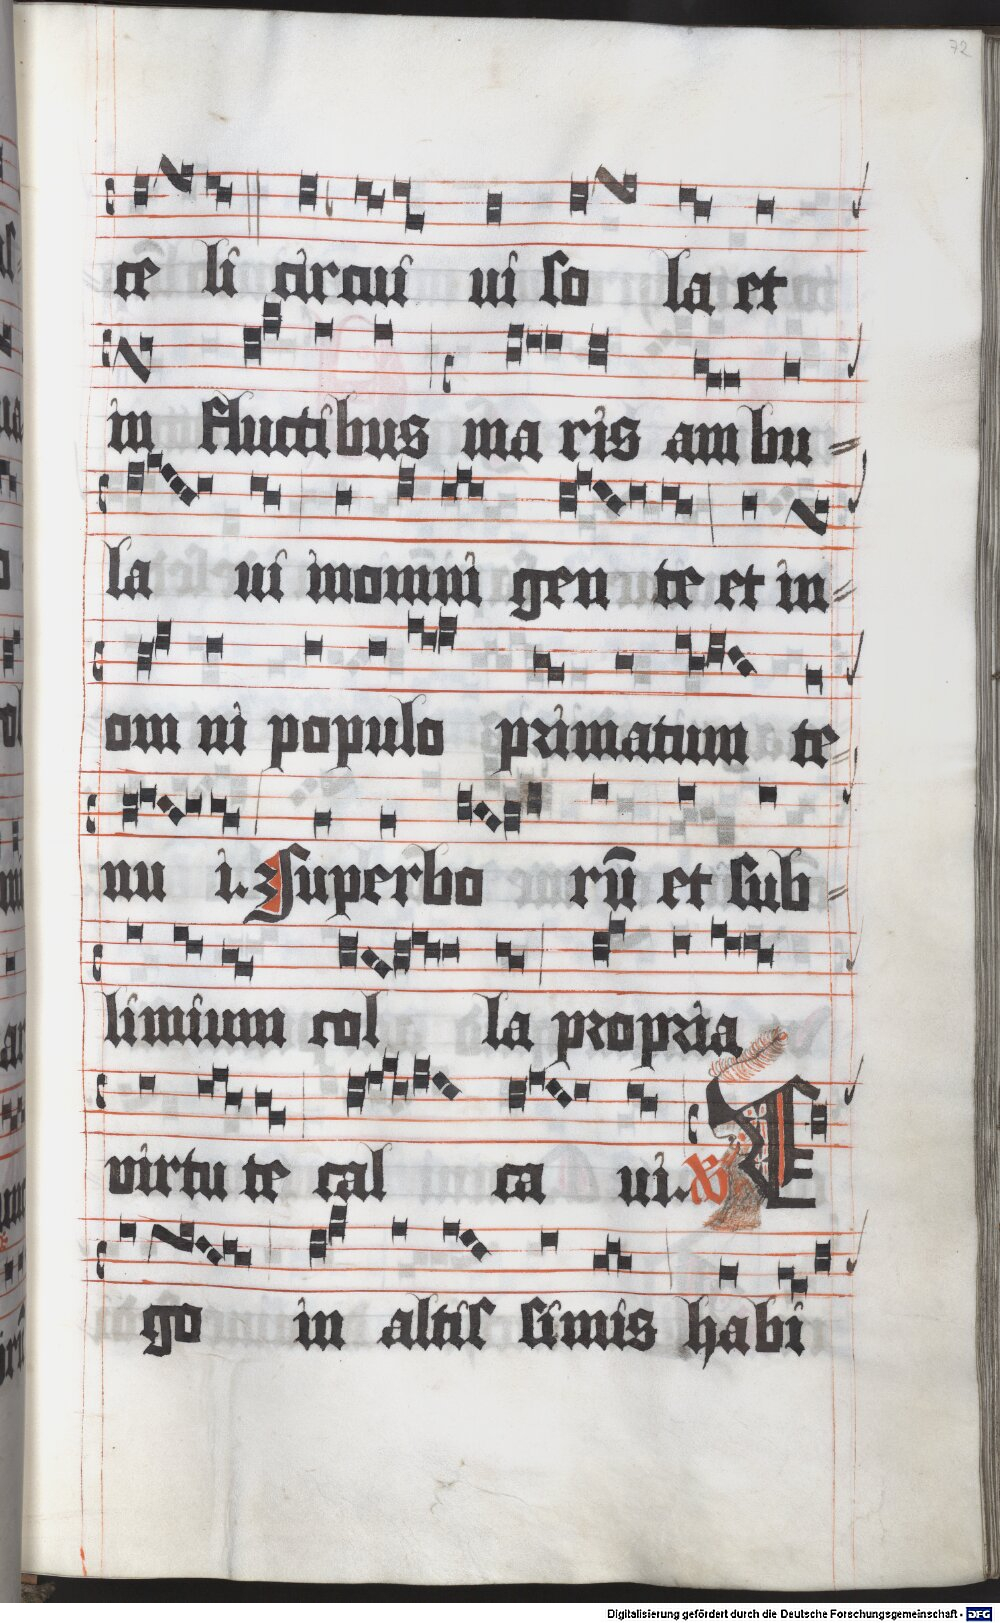 72
ce li circui ui so la et
in fluctibus ma ris am bu
la ui in omni gen te et in
om ni populo primatum te
nu i. Superbo rū et sub
limium col la propria
virtu te cal ca ui. ℟ E
go in altis simis habi
Digitalisierung gefördert durch die Deutsche Forschungsgemeinschaft - DFG